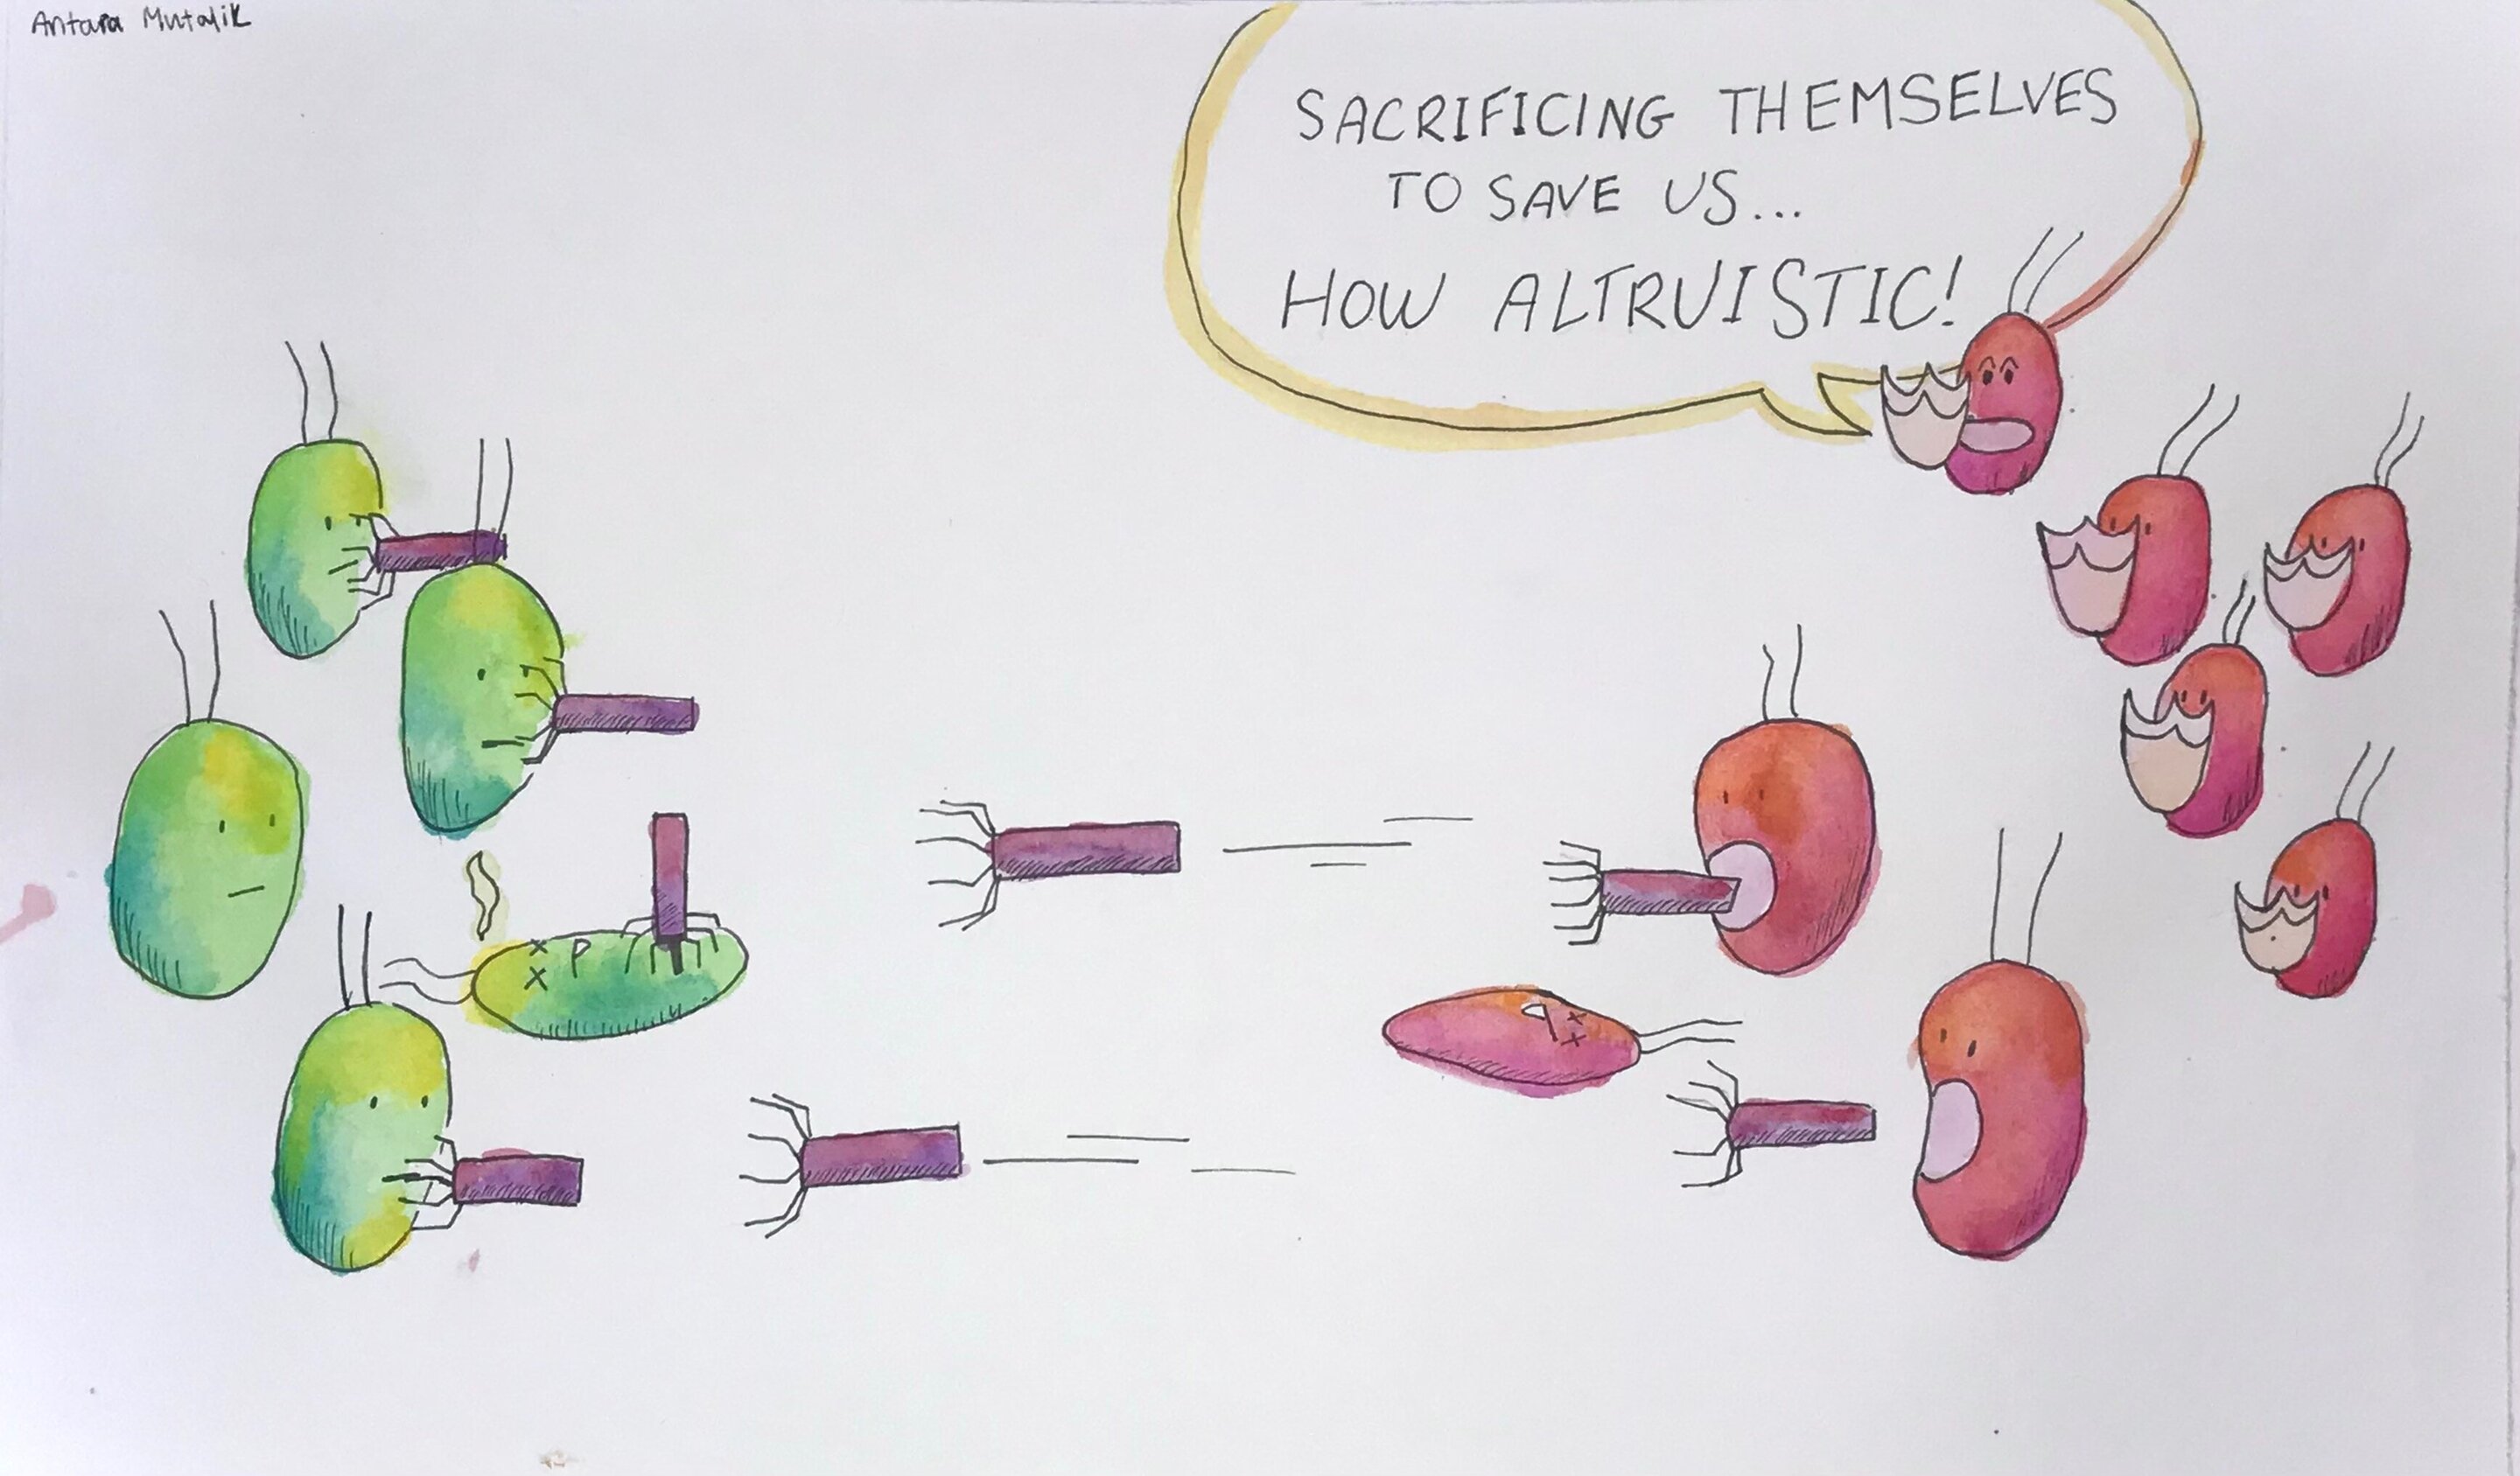 Antara Mutalik
SACRIFICING THEMSELVES
TO SAVE US...
HOW ALTRUISTIC!